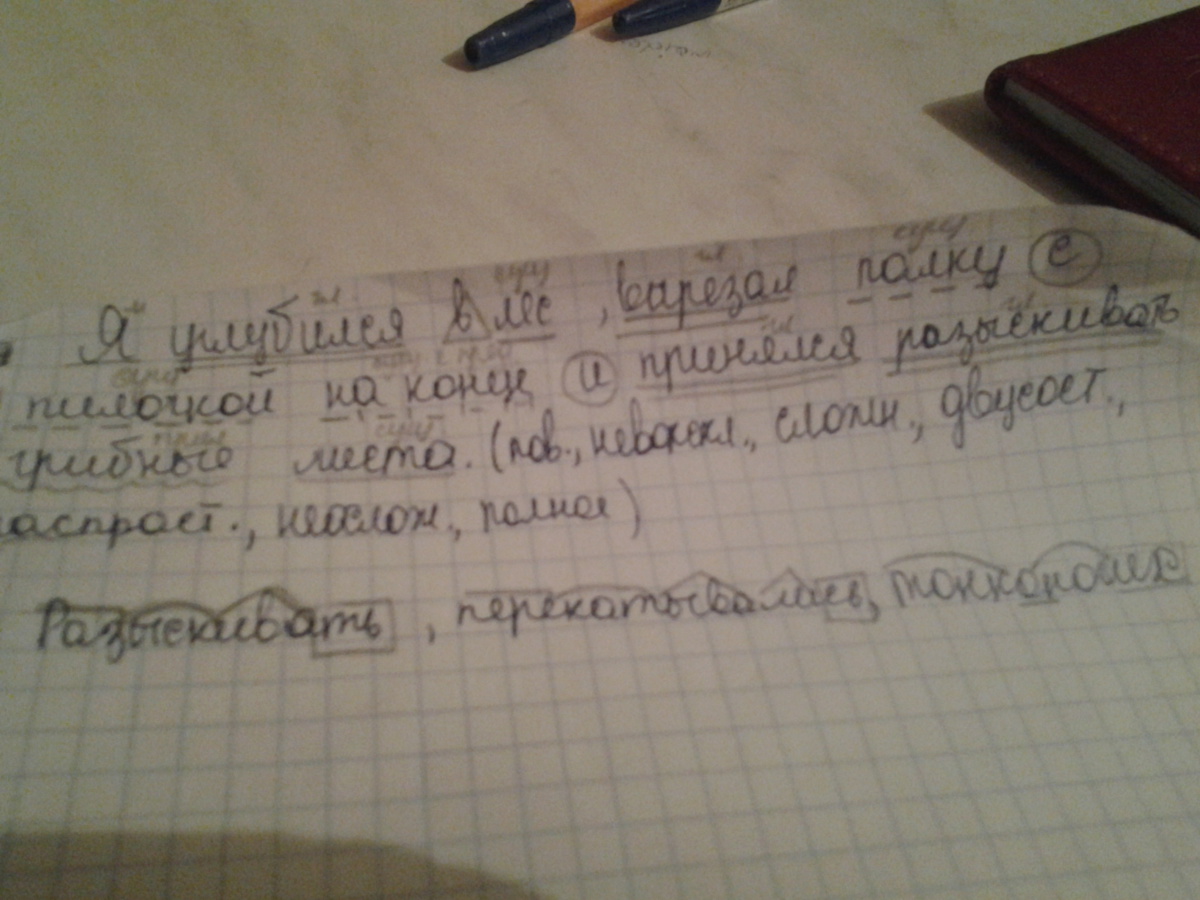 Я углубился в лес, вырезал палку с
пилочкой на конце и принялся разыскивать
грибные места. (пов., невоскл., сложн., двусост.,
распрост., неослож., полное)
Разыскивать, перекатывалась, тонконогих